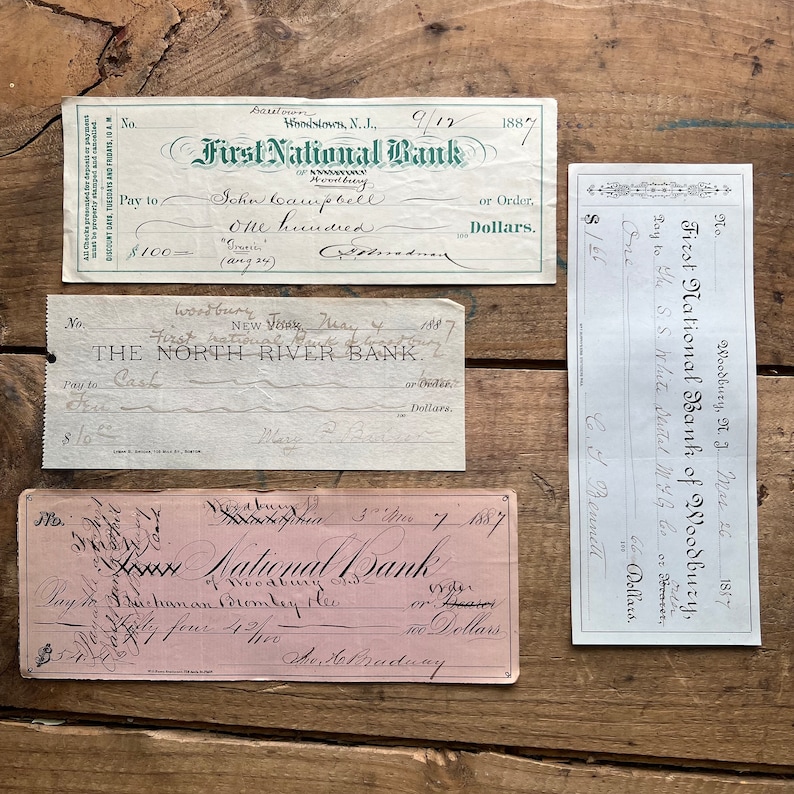 All Checks presented for deposit or payment
must be properly stamped and cancelled.
DISCOUNT DAYS, TUESDAYS AND FRIDAYS, 10 A. M.
Daretown
No. Woodstown, N. J., 9/12 1887
First National Bank
OF
Woodbury
Pay to John Campbell or Order,
One hundred 100 Dollars.
$100=
(Aug 24)
Woodbury
No. NEW YORK, May 4 1887
First National Bank of Woodbury
THE NORTH RIVER BANK.
Pay to Cash or Order,
Ten 100 Dollars.
$10.00 Mary
Woodbury
No. Philadelphia 3d Mo 7 1887
National Bank
of Woodbury NJ
order
Pay to Buchanan Bromley & Co or Bearer
Fifty four 42/100 100 Dollars
$54. Jno. H Bradway
No. Woodbury, N. J. Mar 26 1887
First National Bank of Woodbury,
order
Pay to The S. S. White Dental M'f'g Co or Bearer,
One 66 100 Dollars.
$1.66 C. T. Bennett